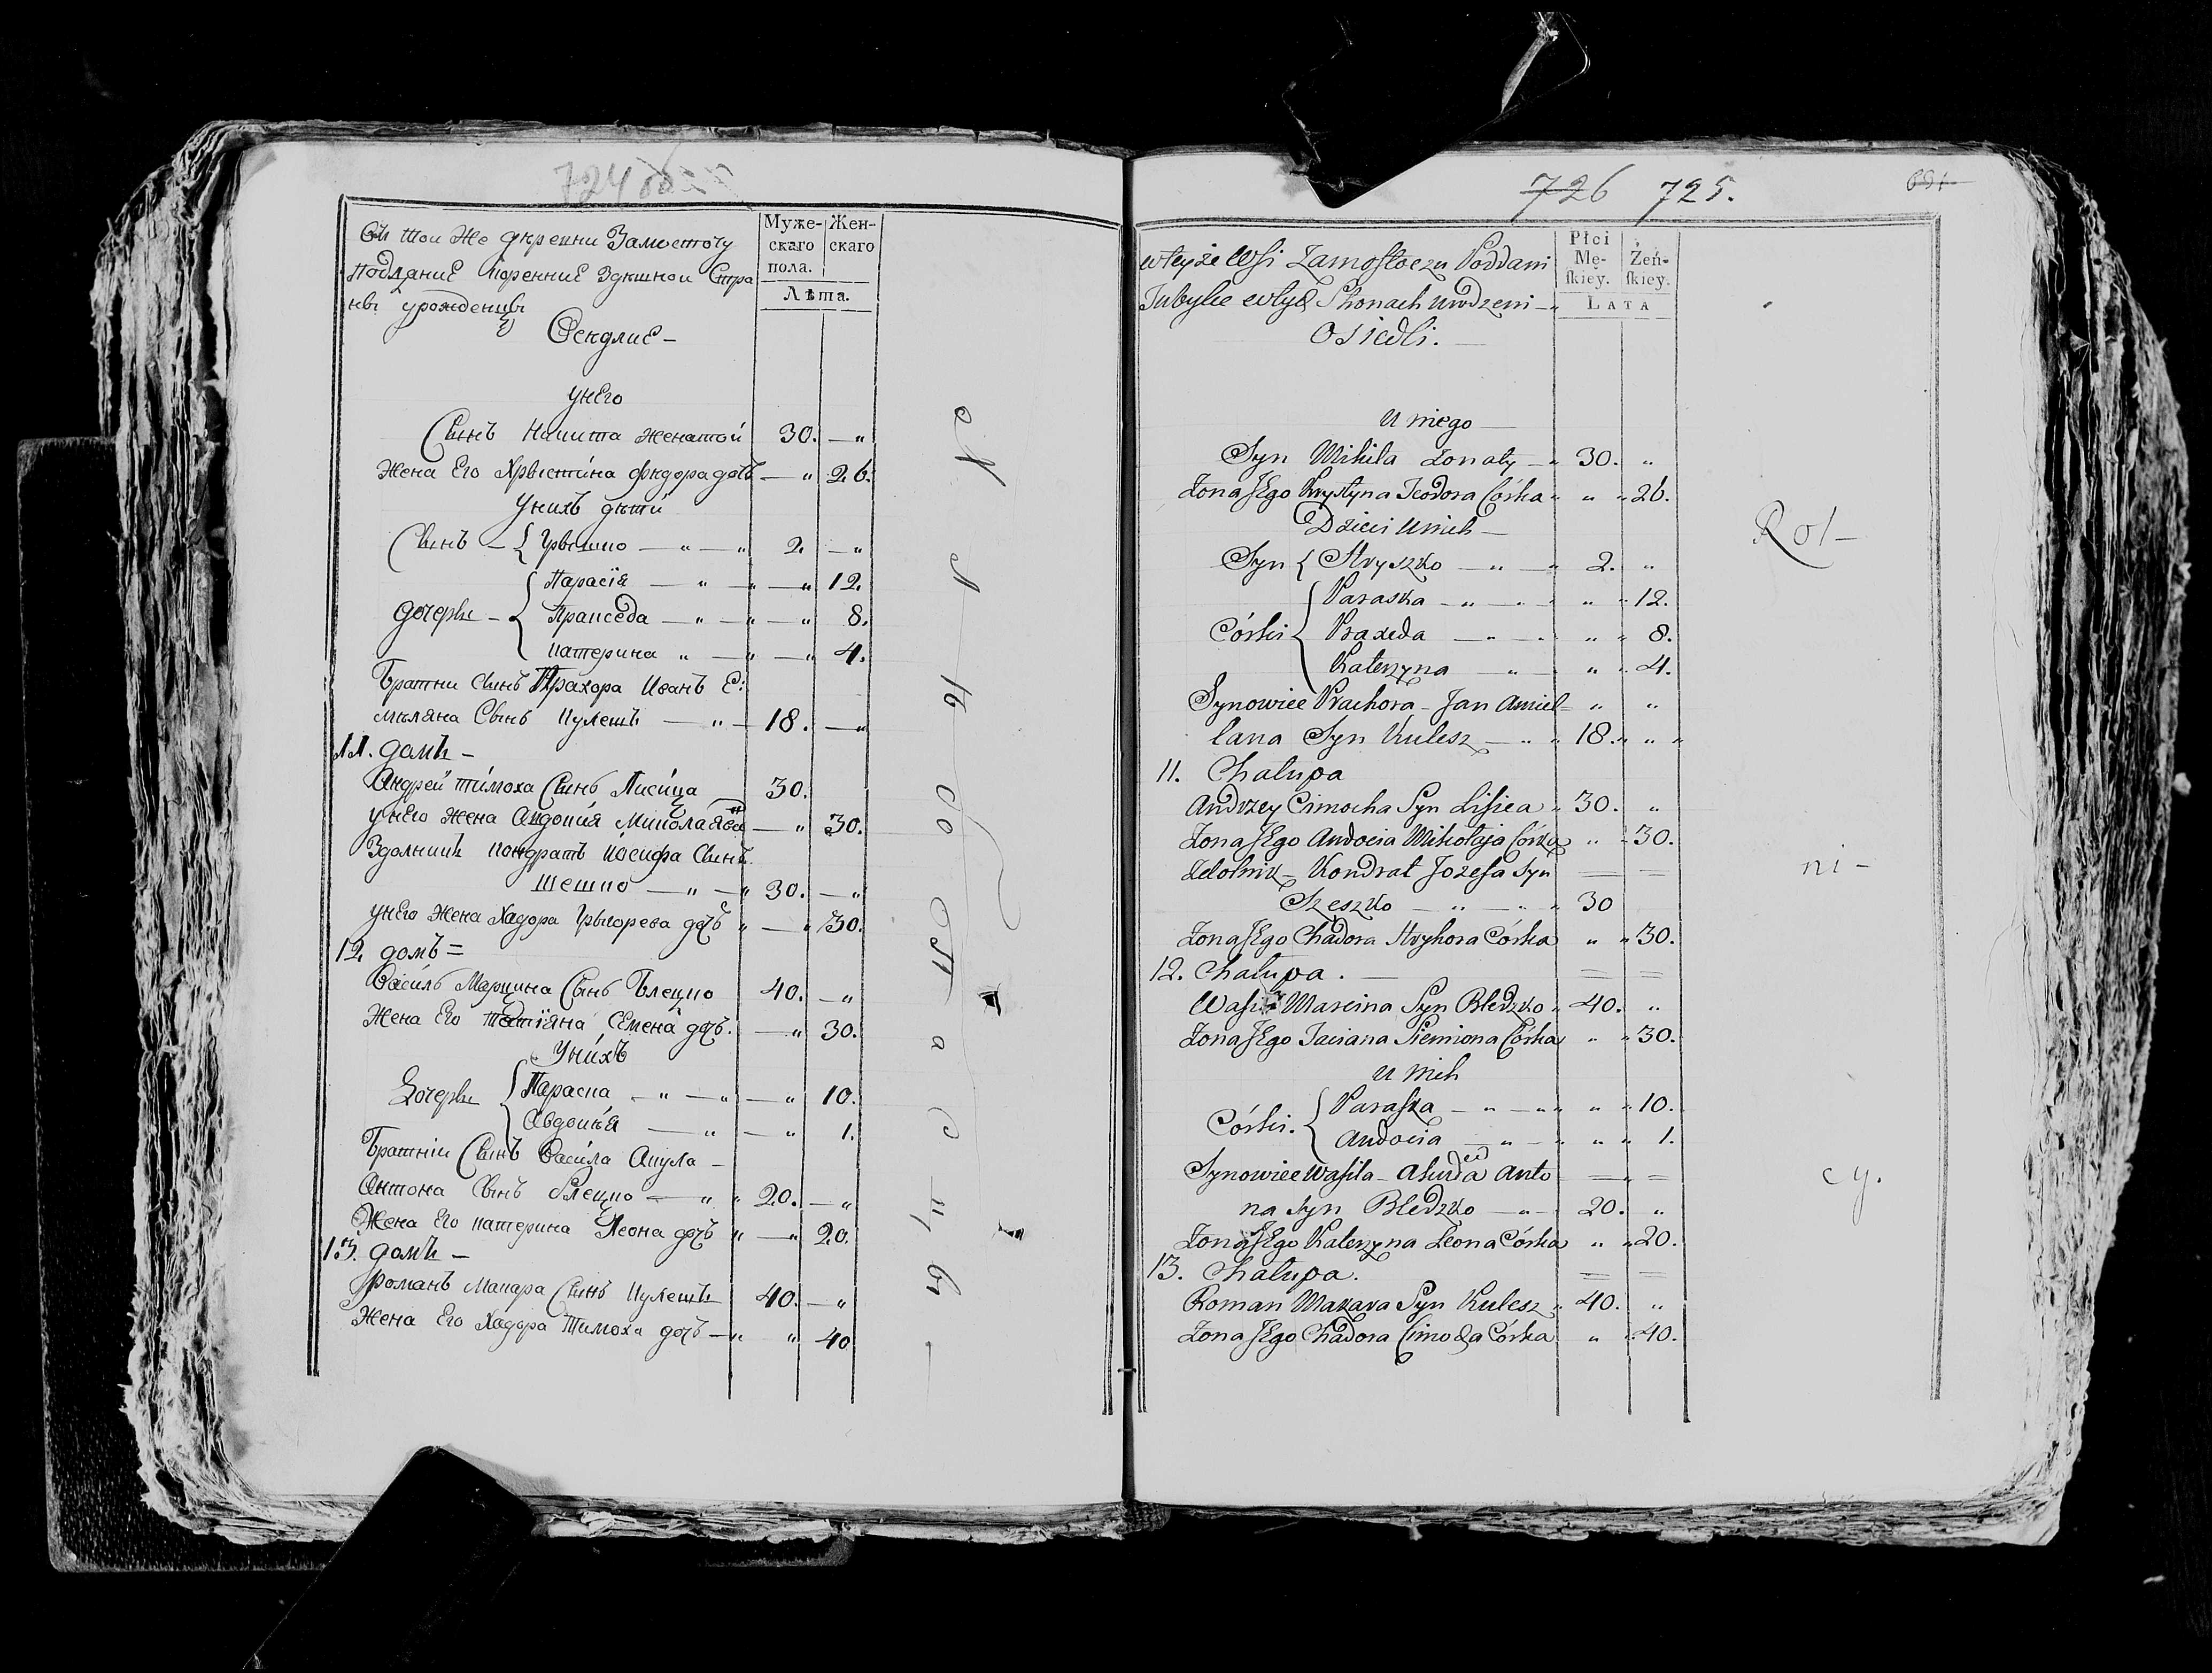 724
Въ тои же дереⷡни Замосточу
Поддание коренние здешнои Стра
ны урожденцы
Осендлие –
Муже-
скаго
пола.
Жен-
скаго
Лѣта.
унего
Сынъ Никита женатои 30. — "
жена Его Хрыстина Фидора дочъ — " 26.
унихъ дети
Сынъ – { Грышко — " — " 2. — "
Парасiя — " — " — " 12.
дочеры – { Праκседа — " — " — " 8.
катерина " — " — " 4.
Братни Сынъ Прахора Иванъ Е:
мельяна Сынъ Кулешъ — " — 18. — "
11. домъ –
Андреи Тимоха Сынъ Лисица 30.
унего жена Авдокия Миколая — " 30.
Здолникъ кондратъ иосифа Сынъ
шешко — " — " 30. — "
унего жена Хадора Грыгорева дочъ " — " 30.
12. домъ =
Василь Марцина Сынъ Блецко 40. — "
Жена Его Татiяна Семена дочъ. — " 30.
унихъ
Дочеры { Параска — " — " — " 10.
Авдокiя — " — " 1.
Братнiи Сынъ Васила Акула –
Антона Сынъ Блецко — " " 20. — "
Жена Его катерина Леона дочъ " — " 20.
13. домъ –
романъ Макара Сынъ Кулешъ 40. — "
Жена Его Хадора Тимоха дочъ — " " 40
726 725.
w teyże Wsi Zamostoczu Poddani
Tubylce w tych Stronach urodzeni — "
Osiedli. —
Płci
Mę-
skiey.
Żeń-
skiey.
LATA
u niego —
Syn Mikita Żonaty — " 30. "
Żona Jego Krystyna Teodora Córka " " " 26.
Dzieci u nich —
Syn { Hryszko — " — " 2. "
Paraska — " — " " " 12.
Córki { Praxeda — " — " " " 8.
Katerzyna — " " " 4.
Synowiec Prachora – Jan Amiel= " "
lana Syn Kulesz — " " 18. " " "
11. Chałupa
Andrzey Cimocha Syn Lisica " 30. "
Żona Jego Audocia Mikołaja Córka " " 30.
Zdolnik – Kondrat Jozefa Syn — —
Szeszko — " — " " 30
Żona Jego Chadora Hryhora Córka " " 30.
12. Chałupa. — = =
Wasil Marcina Syn Bledzko " 40. "
Żona Jego Taciana Siemiona Córka " " 30.
u nich
Córki. { Paraska — " — " " " " 10.
Audocia — " — " " " 1.
Synowiec Wasila – Anto = " =
na Syn Bledzko — " 20. "
Żona Jego Katerzyna Leona Córka " " 20.
13. Chałupa. = =
Roman Makara Syn Kulesz " 40. "
Żona Jego Chadora Cimocha Córka " " 40.
Rol–
ni–
cy.